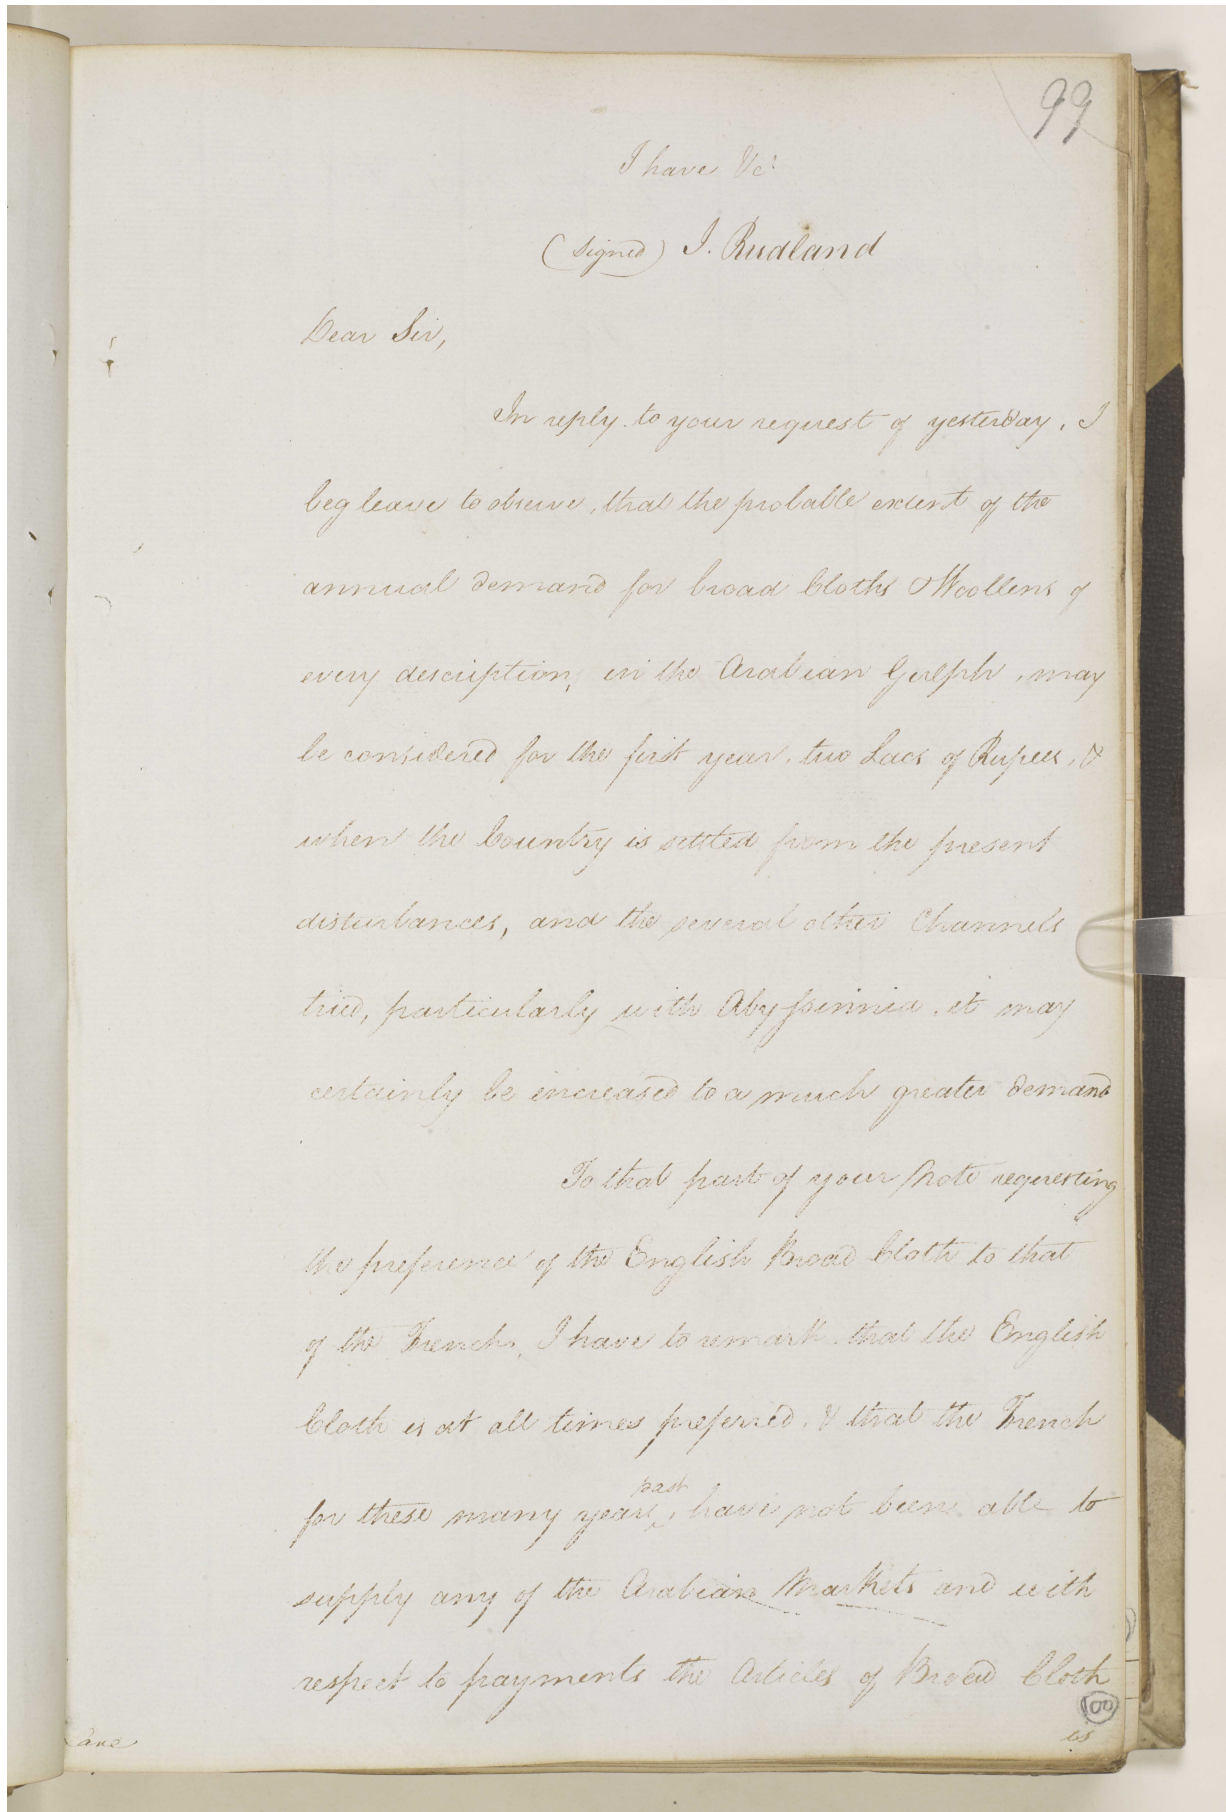 99
I have &c.
(Signed) I. Rudland
Dear Sir,
In reply to your request of yesterday, I
beg leave to observe, that the probable extent of the
annual demand for broad Cloths & Woollens of
every description, in the Arabian Gulph, may
be considered for the first year, two Lacs of Rupees, &
when the Country is settled from the present
disturbances, and the several other Channels
tried, particularly with Abyssinnia, it may
certainly be increased to a much greater demand
To that part of your Note requesting
the preference of the English Broad Cloth to that
of the French, I have to remark that the English
Cloth is at all times preferred, & that the French
for these many years past, have not been able to
supply any of the Arabian Markets and with
respect to payments the Articles of Broad Cloth
100
is